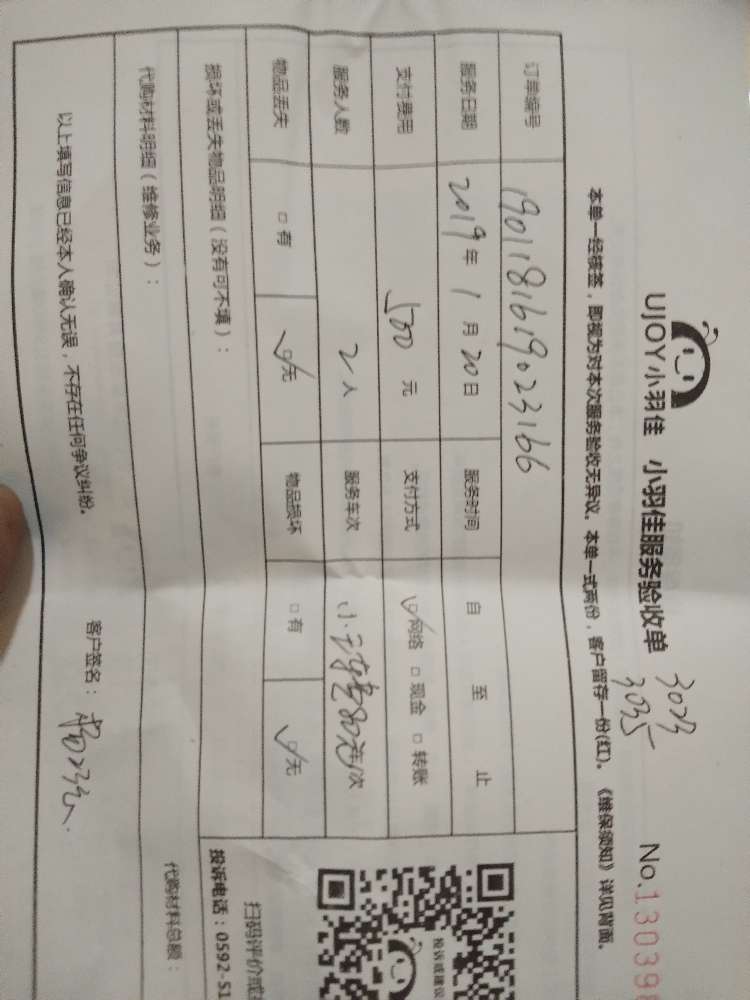 UJOY小羽佳 小羽佳服务验收单 No.130396
3023
3035
本单一经填签，即视为对本次服务验收无异议。本单一式两份，客户留存一份(红)。《维保须知》详见背面。
订单编号 1901181619023166
服务日期 2019年 1月 20日 服务时间 自 至 止
支付费用 500元 支付方式 ☑网络 □现金 □转账
服务人数 2人 服务车次 80 次
物品丢失 □有 ☑无 物品损坏 □有 ☑无
损坏或丢失物品明细（没有可不填）：
代购材料明细（维修业务）：
代购材料总额：
以上填写信息已经本人确认无误，不存在任何争议纠纷。
客户签名：
投诉或建议
扫码评价或
投诉电话：0592-51